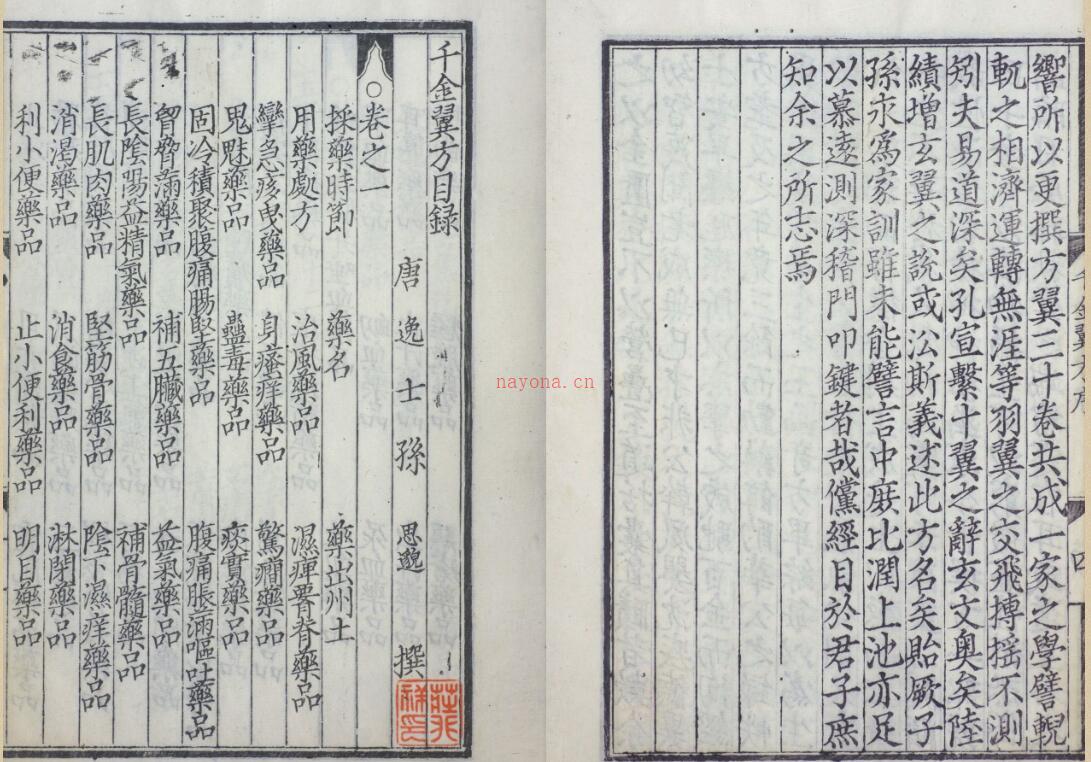 響所以更撰方翼三十卷共成一家之學譬輗
軏之相濟運轉無涯等羽翼之交飛摶搖不測
矧夫易道深矣孔宣繫十翼之辭玄文奥矣陸
績增玄翼之說或沿斯義述此方名矣貽厥子
孫永為家訓雖未能譬言中庶比潤上池亦足
以慕遠測深稽門叩鍵者哉儻經目於君子庶
知余之所志焉
千金翼方序
四
千金翼方目錄
唐逸士孫思邈撰
卷之一
採藥時節 藥名 藥出州土
用藥處方 治風藥品 濕痺腰脊藥品
攣急㾏曳藥品 身瘙痒藥品 驚癇藥品
鬼魅藥品 蠱毒藥品 痰實藥品
固冷積聚腹痛腸堅藥品 腹痛脹滿嘔吐藥品
胷脅滿藥品 補五臟藥品 益氣藥品
長陰陽益精氣藥品 補骨髓藥品
長肌肉藥品 堅筋骨藥品 陰下濕痒藥品
消渴藥品 消食藥品 淋閉藥品
利小便藥品 止小便利藥品 明目藥品
nayona.cn